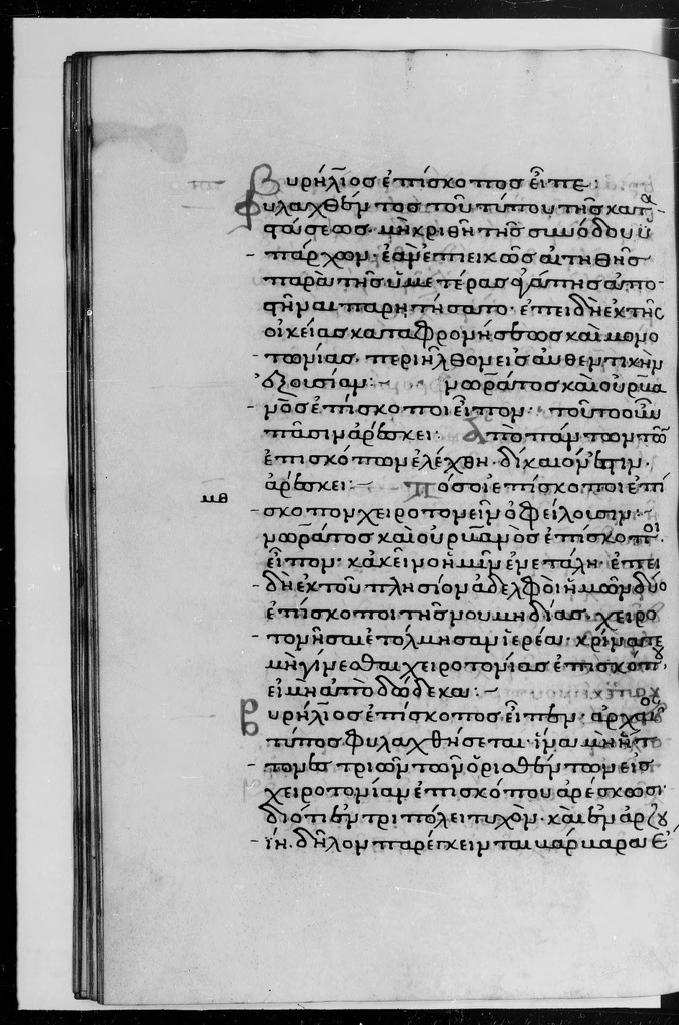 Βυρήλϊος ἐπίσκοπος εἶπε:
φυλαχθέντος τοῦ τύπου τῆς κατα
στάσεως. μὴ κριθῆ τῆς συνόδου ὑ
πάρχων· ἐὰν ἐπιεικῶς αἰτηθῆς
παρὰ τῆς ὑμετέρας ἀγάπης ἀπο
στῆναι παρητήσατο· ἐπειδὴ ἐκ τῆς
οἰκείας καταφρονήσεως καὶ μονο
τονίας. περιῆλθον εἰς αὐθεντικὴν
διοισίαν:- νωρᾶτος καὶ οὐρβα
νὸς ἐπίσκοποι εἶπον· τοῦτο οὖν
πᾶσιν ἀρέσκει: ἀπὸ πάντων τῶν
ἐπισκόπων ἐλέχθη. δίκαιόν ἐστιν.
ἀρέσκει:- Πόσοι ἐπίσκοποι ἐπί
μθ
σκοπον χειροτονεῖν ὀφείλουσιν:-
νωρᾶτος καὶ οὐρβανὸς ἐπίσκοποι
εἶπον· κἀκεῖνο ἡμῖν ἐνετάλη· ἐπει
δὴ ἐκ τοῦ πλησίον ἀδελφοὶ ἡμῶν δύο
ἐπίσκοποι τῆς νουμηδίας. χειρο
τονῆσαι ἐτόλμησαν ϊερέα· κρῖναι
μὴ γίνεσθαι χειροτονίας ἐπισκόπου,
εἰ μὴ ἀπὸ δώδεκα:-
αυρήλϊος ἐπίσκοπος εἶπεν· ἀρχαῖος
τύπος φυλαχθήσεται· ἵνα μὴ ἧττ
τον ἐς τριῶν τῶν ὁρισθέντων εἰς
χειροτονίαν ἐπισκόπου ἀρέσκωσι·
διότι ἐν τριπόλει τυχὸν. καὶ ἐν ἀρζου
ΐη. δῆλον παρέγκεινται βάρβαρα ἔ